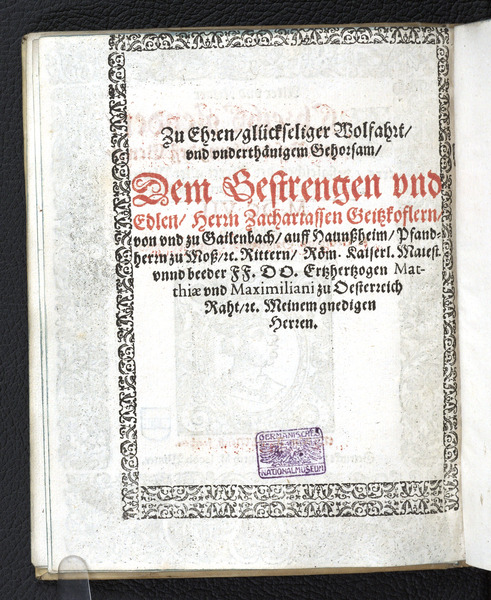 Zu Ehren/glückseliger Wolfahrt/
vnd vnderthänigem Gehorsam/
Dem Gestrengen vnd
Edlen/ Herrn Zachariassen Geitzkoflern/
von vnd zu Gailenbach/ auff Haunßheim/ Pfand-
herrn zu Moß/ꝛc. Rittern/ Röm. Kaiserl. Maiest.
vnnd beeder FF. DD. Ertzhertzogen Mat-
thiæ vnd Maximiliani zu Oesterreich
Raht/ꝛc. Meinem gnedigen
Herren.
GERMANISCHES
NATIONALMUSEUM